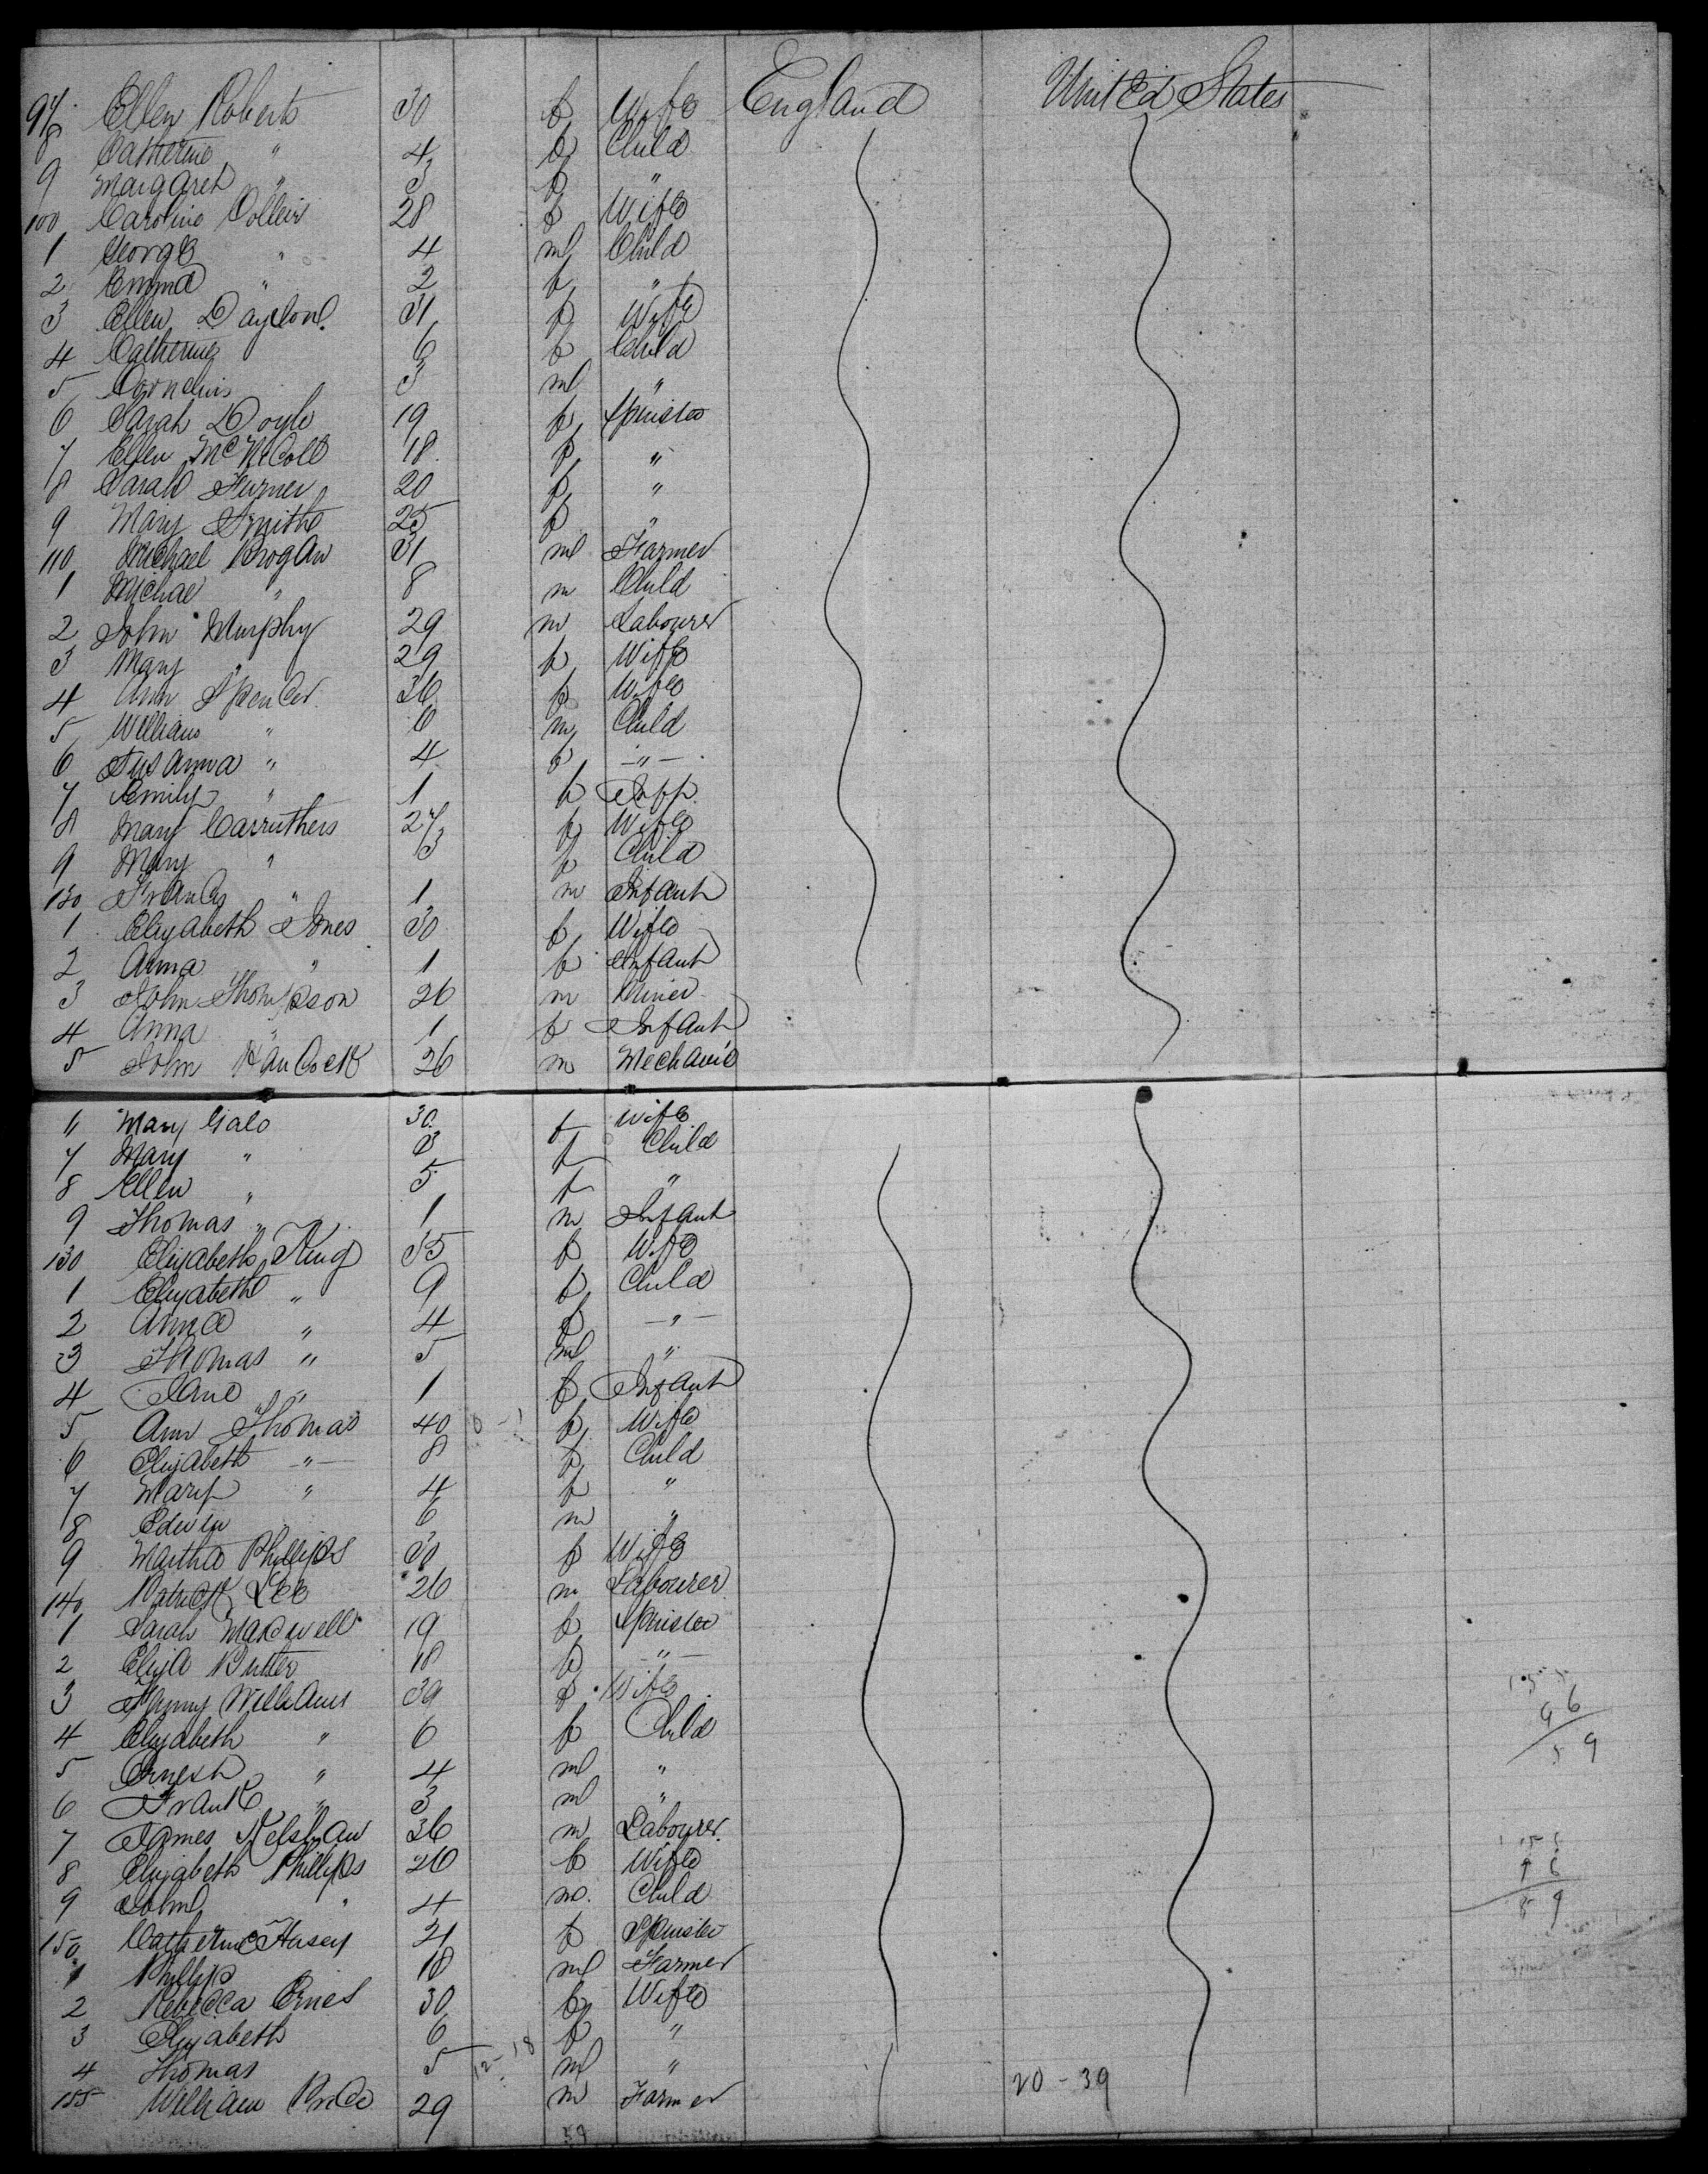 97 Ellen Roberts 30 f Wife England United States
8 Catherine " 4 f Child
9 Margaret " 3 f "
100 Caroline 28 f Wife
1 George " 4 ml Child
2 Emma " 2 f "
3 Ellen 31 f Wife
4 Catherine 6 f Child
5 Cornelius 3 ml "
6 Sarah Doyle 19 f Spinster
7 Ellen McNicoll 18 f "
8 Sarah Turner 20 f "
9 Mary Smith 25 f "
110 Michael Brogan 31 ml Farmer
1 Michael " 8 m Child
2 John Murphy 29 m Labourer
3 Mary " 29 f Wife
4 Ann Spencer 36 f Wife
5 William " 6 m Child
6 Susanna " 4 f - " -
7 Emily " 1 f
8 Mary Carruthers 27 f Wife
9 Mary " 3 f Child
120 Francis " 1 m Infant
1 Elizabeth Jones 30 f Wife
2 Anna " 1 f Infant
3 John Thompson 26 m Miner
4 Anna " 1 f Infant
5 John Hancock 26 m Mechanic
" Mary Gale 30 f Wife
7 Mary " 8 f Child
8 Ellen " 5 f "
9 Thomas " 1 m Infant
130 Elizabeth King 35 f Wife
1 Elizabeth " 9 f Child
2 Anna " 4 f - " -
3 Thomas " 5 ml "
4 Jane " 1 f Infant
5 Ann Thomas 40 f Wife
6 Elizabeth - " - 8 f Child
7 Mary " 4 f "
8 Edwin 6 m "
9 Martha Phillips 30 f Wife
140 Patrick Lee 26 m Labourer
1 Sarah Maxwell 19 f Spinster
2 Eliza Butler 18 f - " -
3 Fanny Williams 39 f Wife
4 Elizabeth " 6 f Child
5 Ernest " 4 ml "
6 Frank " 3 ml "
7 James Kelshaw 36 m Labourer
8 Elizabeth Phillips 26 f Wife
9 John " 4 m. Child
150 Catherine Hasey 21 f Spinster
1 Phillip 18 ml Farmer
2 Rebecca 30 f Wife
3 Elizabeth 6 f "
4 Thomas 5 12-18 ml "
155 William Price 29 m Farmer 20 - 39
59
96
59
96
59